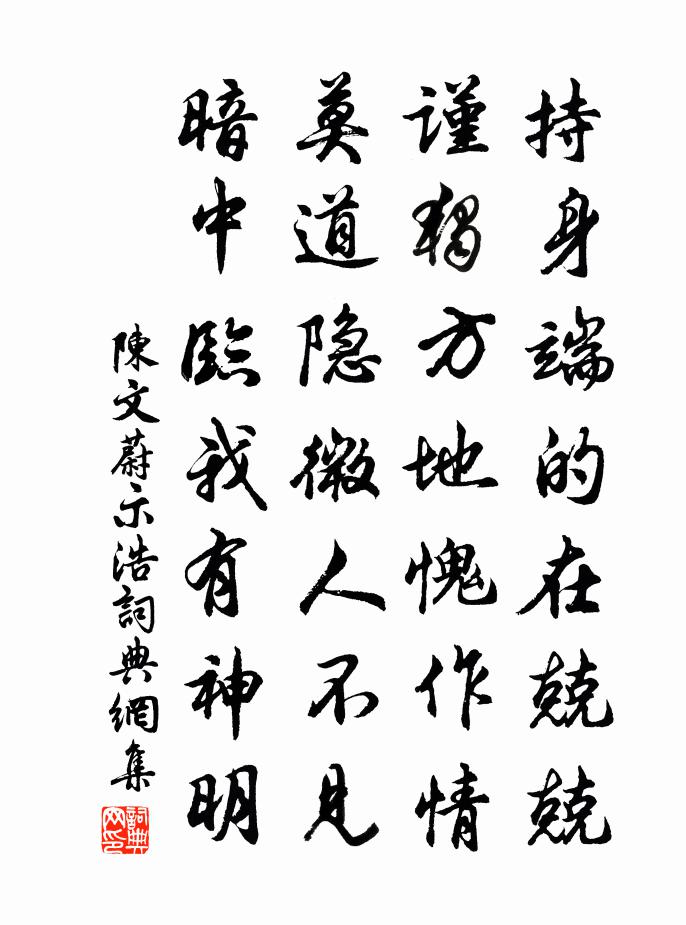 持身端的在兢兢
谨獨方地愧作情
莫道隐微人不見
暗中臨我有神明
陳文蔚示浩詞典網集
詞典网印